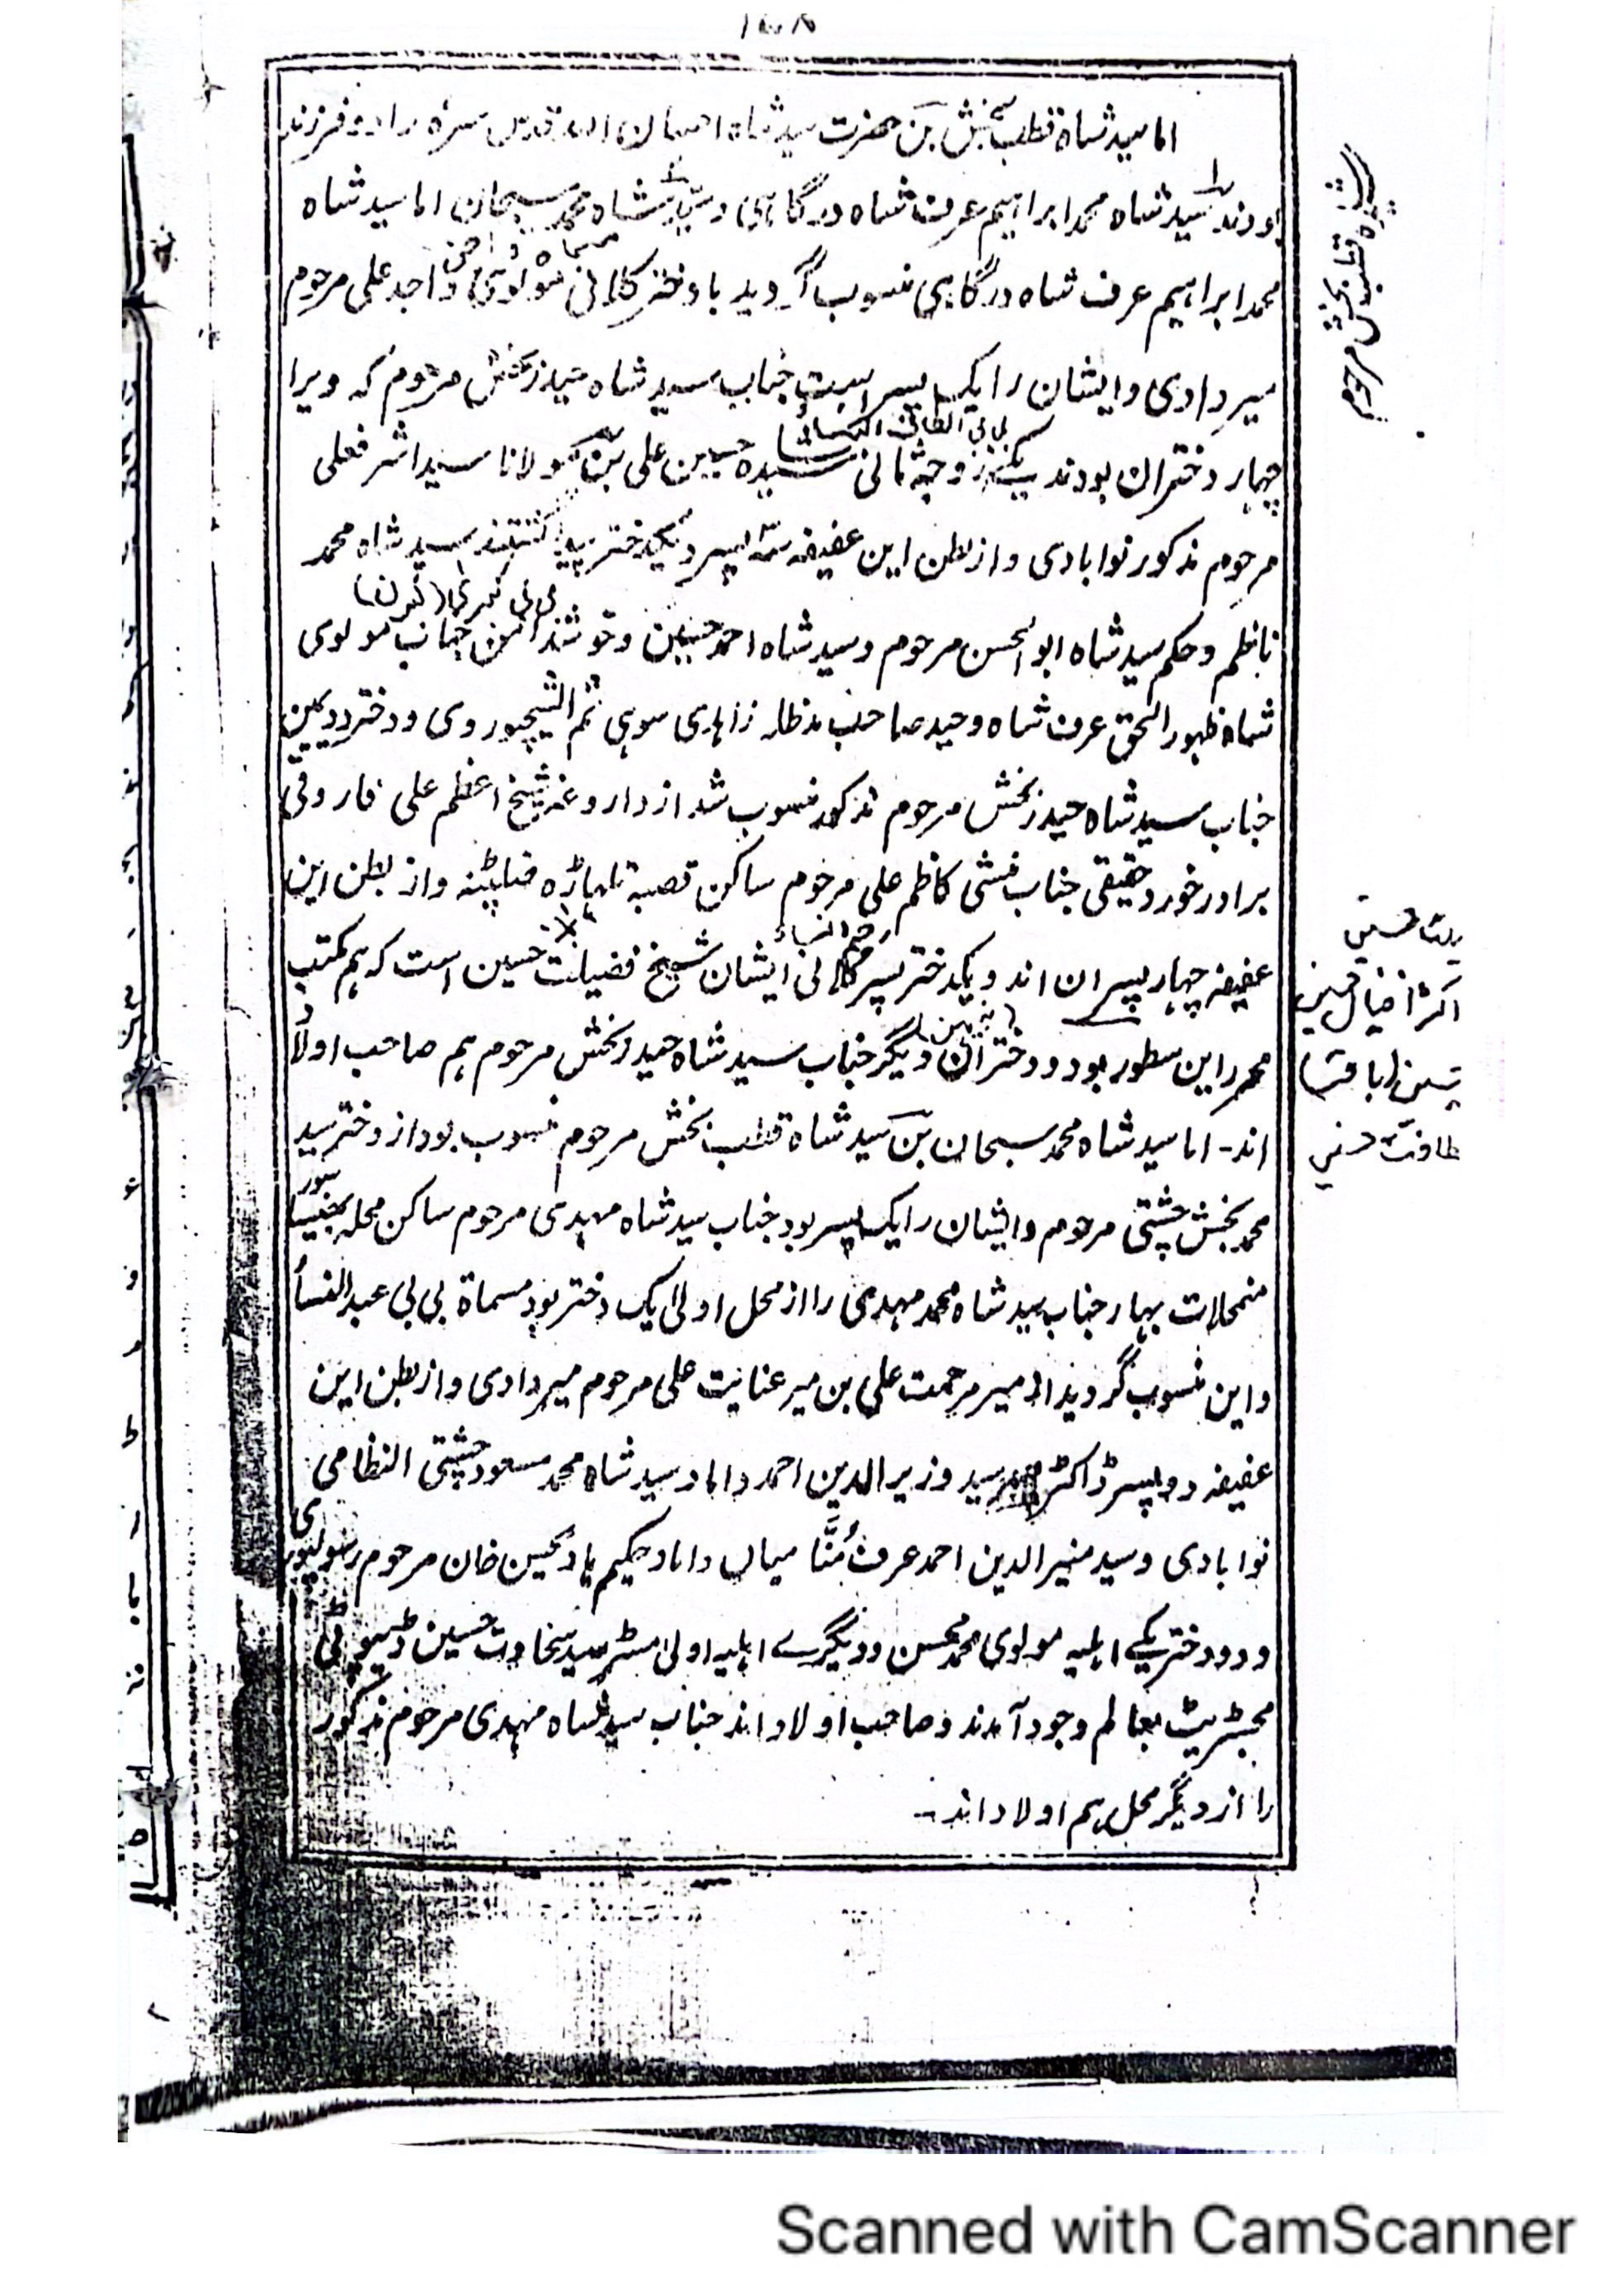 اما سید شاه قطب بخش بن حضرت سید شاه احسان الله قدس سره را دو فرزند
بودند سید شاه محمد ابراهیم عرف شاه درگاهی و سید شاه محمد سبحان اما سید شاه
محمد ابراهیم عرف شاه درگاهی منسوب گردید با دختر کلانی مولوی واجد علی مرحوم
میردادی و ایشان را یک پسر است جناب سید شاه حیدر بخش مرحوم که ویرا
چهار دختران بودند یکی زوجه ثانی سید حسین علی بن مولانا سید اشرف علی
مرحوم مذکور نوابادی و از بطن این عفیفه سه پسر و یکدختر سید شاه محمد
بی بی
ناظم و حکم سید شاه ابو الحسن مرحوم و سید شاه احمد حسین و جناب مولوی
شاه ظهور الحق عرف شاه وحید صاحب مدظله ثم الشیخپوروی و دختر دویمین
جناب سید شاه حیدر بخش مرحوم مذکور منسوب شد از داروغه شیخ اعظم علی فاروقی
برادر خورد حقیقی جناب منشی کاظم علی مرحوم ساکن قصبه تلهاڑه ضلع پٹنه و از بطن این
عفیفه چهار پسران اند و یکدختر پسر کلانی ایشان شیخ فضیلت حسین است که هم مکتب
محرر این سطور بود و دختران دیگر جناب سید شاه حیدر بخش مرحوم هم صاحب اولاد
اند- اما سید شاه محمد سبحان بن سید شاه قطب بخش مرحوم منسوب بود از دختر سید
محمد بخش چشتی مرحوم و ایشان را یک پسر بود جناب سید شاه مهدی مرحوم ساکن محله
منمحلات بهار جناب سید شاه محمد مهدی را از محل اولی یک دختر بود مسماة بی بی عبد النسأ
و این منسوب گردید از میر مرحمت علی بن میر عنایت علی مرحوم میردادی و از بطن این
عفیفه دو پسر ڈاکٹر سید وزیر الدین احمد داماد سید شاه محمد مسعود چشتی النظامی
نوابادی و سید منیر الدین احمد عرف مُنَّا میاں داماد حکیم یاد حسین خان مرحوم رسولپوری
و دو دختر یکے اهلیه مولوی محمد محسن و دیگرے اهلیه اولی مسٹر سید سخاوت حسین ڈپیوٹی
مجسٹریٹ بعالم وجود آمدند و صاحب اولاد اند جناب سید شاه مهدی مرحوم مذکور
را از دیگر محل هم اولاد اند-
قطب بخش مرحوم
Scanned with CamScanner